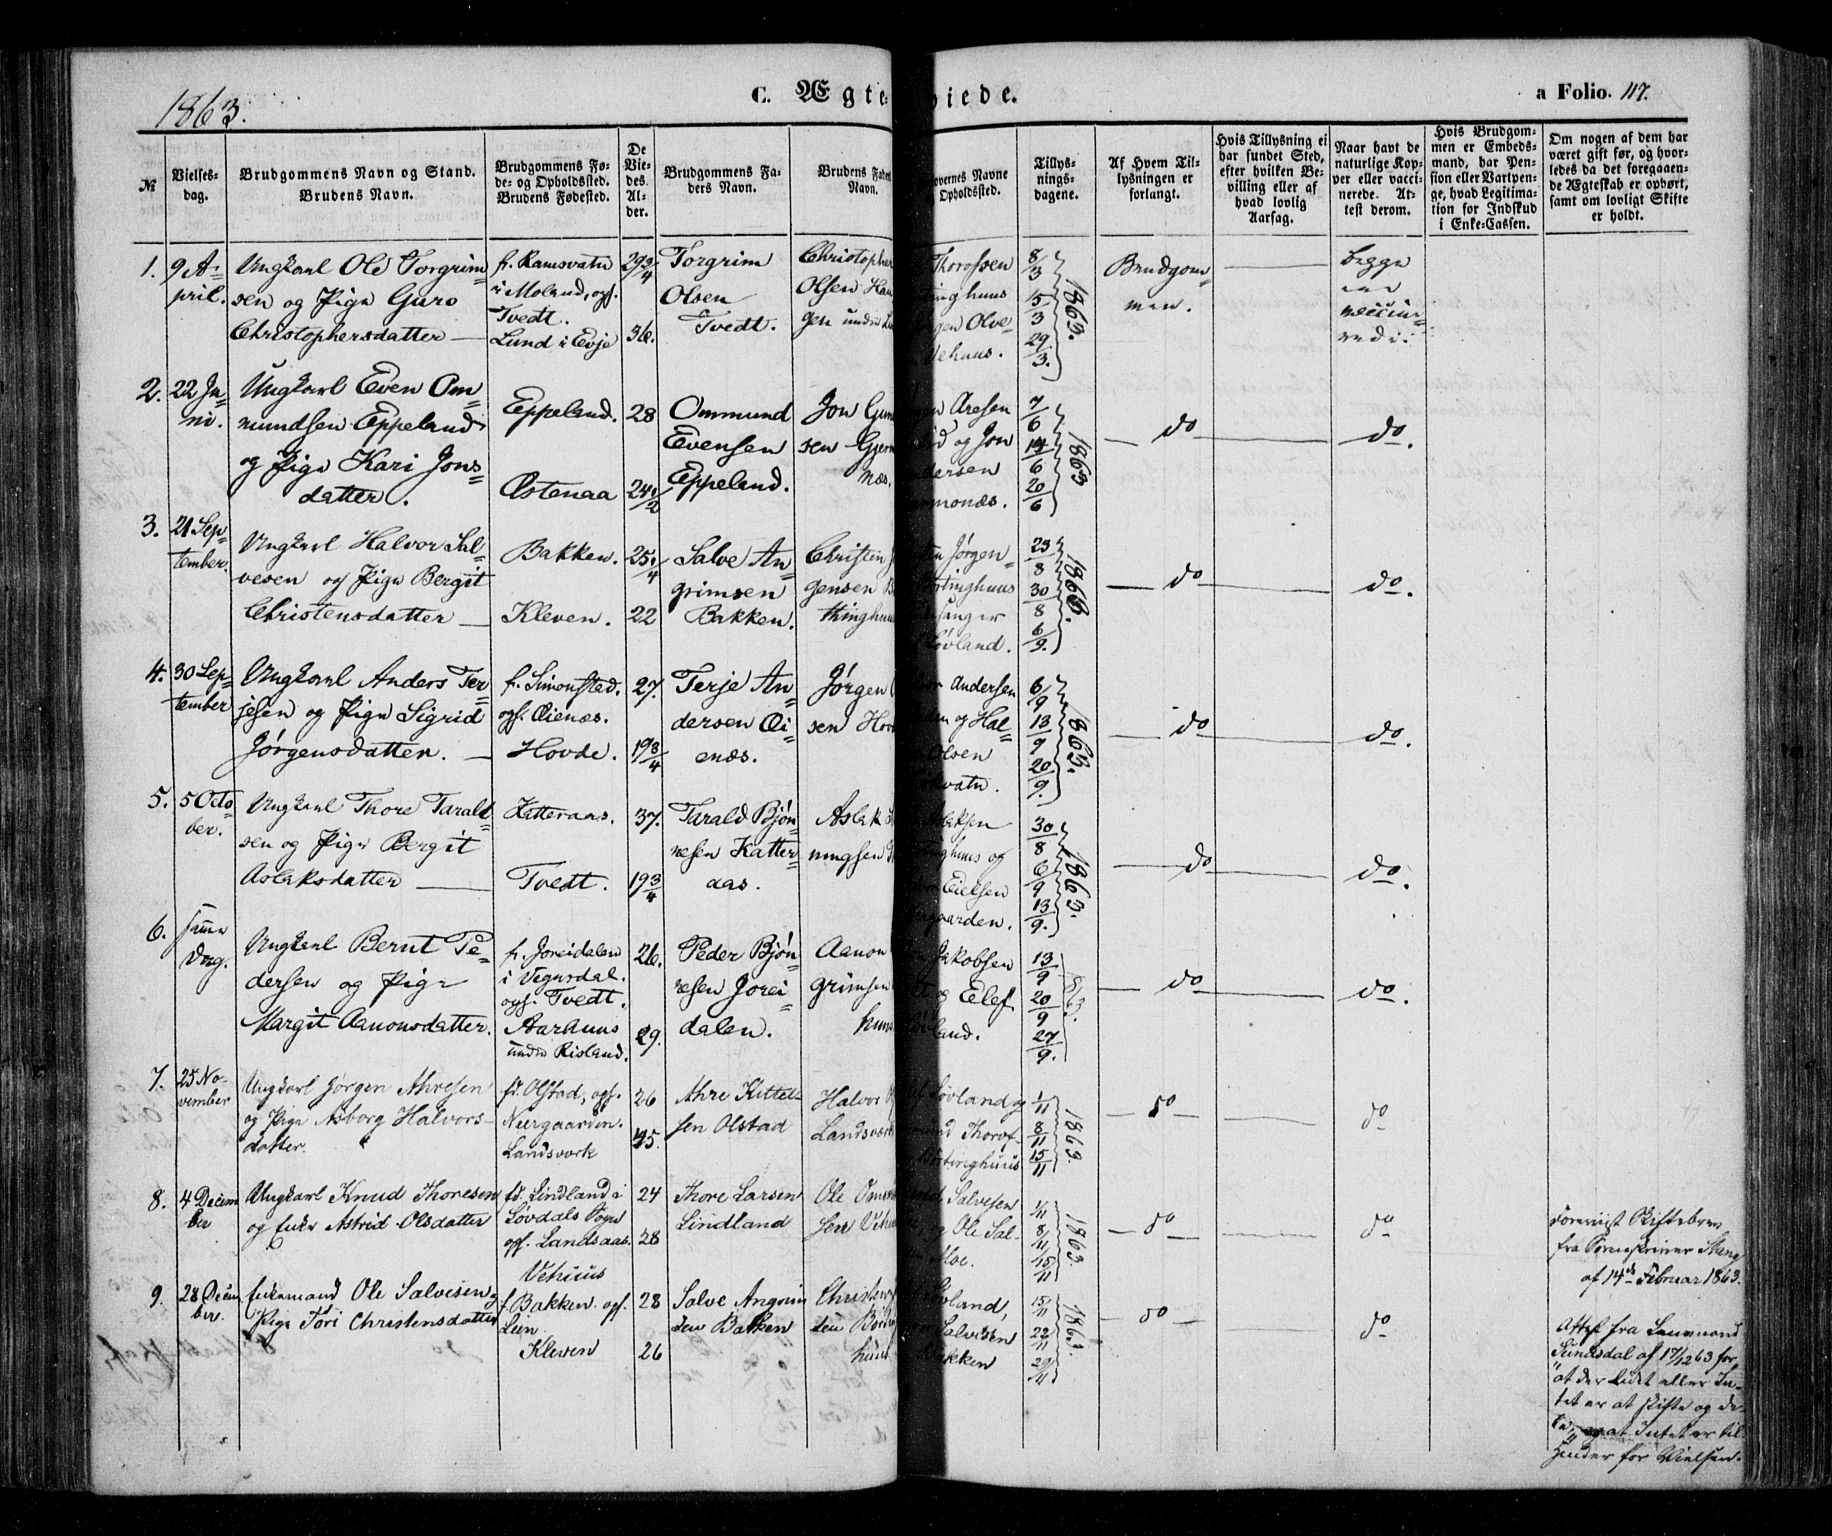 1863.
C. Ægte viede.
a Folio. 117.
№
Vielses-
dag.
Brudgommens Navn og Stand.
Brudens Navn.
Brudgommens Fø-
de- og Opholdssted.
Brudens Fødested.
De
Vie-
des
Al-
der.
Brudgommens Fa-
ders Navn.
Brudens Faders
Navn.
overnes Navne
Opholdssted.
Tillys-
nings-
dagene.
Af Hvem Til-
lysningen er
forlangt.
Hvis Tillysning ei
har fundet Sted,
efter hvilken Be-
villing eller af
hvad lovlig
Aarsag.
Naar havt de
naturlige Kop-
per eller vacci-
nerede. At-
test derom.
Hvis Brudgom-
men er Embeds-
mand, har Pen-
sion eller Vartpen-
ge, hvad Legitima-
tion for Indskud
i Enke-Cassen.
Om nogen af dem har
været gift før, og hvor-
ledes da det foregaaen-
de Ægteskab er ophørt,
samt om lovligt Skifte
er holdt.
1. 9 A-
pril.
Ungkarl Ole Torgrim-
sen og Pige Guro
Christophersdatter
f. Ramsvatn
i Moland, opf.
Tvedt.
Lund i Evje
29 3/4
36.
Torgrim
Olsen
Tvedt.
Christopher
Olsen Hau
gen under
Thorossen
tinghuus
gen Olve-
Vehuus.
8/3
15/3
29/3.
1863.
Brudgom-
men.
begge
ere
vaccine-
rede.
2. 22 Ju-
ni.
Ungkarl Even Om-
mundsen Eppeland
og Pige Kari Jons-
datter.
Eppeland.
Østenaa
28
24 1/2
Ommund
Evensen
Eppeland.
Jon Gun
sen Gjerm
næs.
Aresen
og Jon
dersen
rmonæs.
7/6
14/6
20/6
1863
do
do.
3. 21 Sep-
tember.
Ungkarl Halvor Sal-
vesen og Pige Bergit
Christensdatter
Bakken.
Kleven.
25 1/4
22
Salve An-
grimsen
Bakken.
Christen J
gensen B
thinghuu
Jørgen-
tinghuus
sanger
Løvland.
23/8
30/8
6/9.
1863.
do
do.
4. 30 Sep-
tember
Ungkarl Anders Ter-
jesen og Pige Sigrid
Jørgensdatter.
f. Simonsted.
opf. Øienæs.
Hovde.
27.
19 3/4
Terje An-
dersen Øi-
enæs.
Jørgen
sen Hov
Andersen
og Hal-
Olsen
vatn.
6/9
13/9
20/9.
1863.
do
do.
5. 5 Octo-
ber.
Ungkarl Thore Tarald-
sen og Pige Bergit
Aslaksdatter
Katteraas.
Tvedt.
37.
19 3/4
Tarald Bjøn-
nesen Katter-
aas.
Aslak
ningsen
Aslaksen
tinghuus og
Eielsen
gaarden.
30/8
6/9
13/9.
1863.
do
do.
6. samme
Dag.
Ungkarl Bernt Pe-
dersen og Pige
Margit Aanonsdatter.
f. Joreidalen
i Vegusdal.
opf. Tvedt.
Aarhuus
under Risland.
26.
29.
Peder Bjøn-
nesen Jorei-
dalen.
Aanon
grimsen
huus
Jakobsen
og Elef
land.
13/9
20/9
27/9.
1863.
do
do.
7. 25 No-
vember
Ungkarl Jørgen Ahresen
og Pige Asborg Halvors-
datter.
fd. Olstad, opf.
Neergaarden.
Landsverk
26
45.
Ahre Kittel-
sen Olstad
Halvor
Landsverk
Løvland og
Thorof-
Bortinghuus
1/11
8/11
15/11
1863.
do
do
8. 4 Decem
ber
Ungkarl Knud Thoresen
og Enke Astrid Olsdatter
fd. Lindland i
Løvdals Sogn
opf. Landsaas.
Vehuus
24
28
Thore Larsen
Lindland
Ole Omun
sen Vehu
Salvesen
og Ole Sal-
Moe.
1/11
8/11
15/11
1863.
do
do
Foreviist Skiftebrev
fra Sorenskriver Stang
af 14de Februar 1863.
9. 28 Decem
ber.
Enkemand Ole Salvesen og
Pige Tori Christensdatter
f. Bakken. opf.
Lien.
Kleven
28
26
Salve Angrim
sen Bakken
Christen
sen Borti
huus
Løvland,
Salvesen
Bakken
15/11
22/11
29/11
1863.
do
do
Attest fra Lensmand
Sundsdal af 17/12 63 for
"at der lidet eller In-
tet er at skifte og de-
le, og at Intet er til
Hinder for Vielsen.